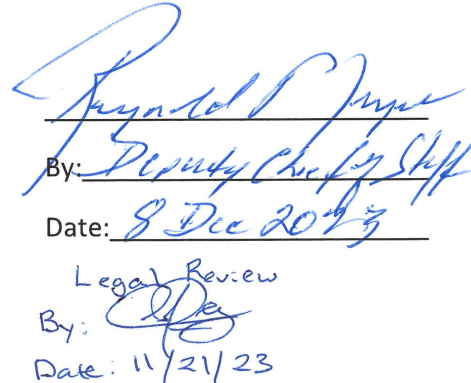 Reynold P
By: Deputy Chief of Staff
Date: 8 Dec 2023
Legal Review
By:
Date: 11/21/23